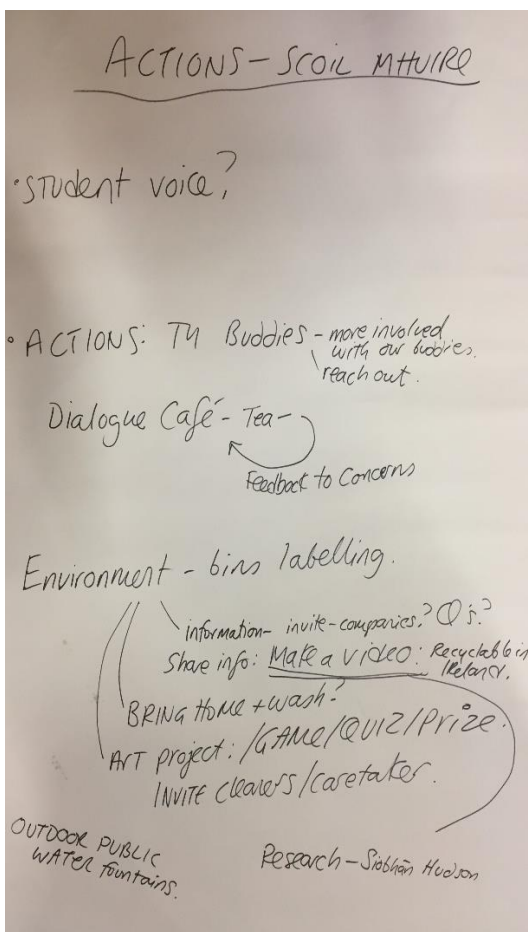 ACTIONS - SCOIL MHUIRE
• STUDENT VOICE?
• ACTIONS: TY Buddies - more involved
with our buddies.
reach out.
Dialogue Café - Tea -
Feedback to Concerns
Environment - bins labelling.
information - invite - companies? Q's?
Share info: Make a video: Recyclable in
Ireland.
BRING HOME + wash?
ART project: /GAME/QUIZ/Prize.
INVITE Cleaners/Caretaker.
OUTDOOR PUBLIC
WATER fountains.
Research - Siobhán Hudson